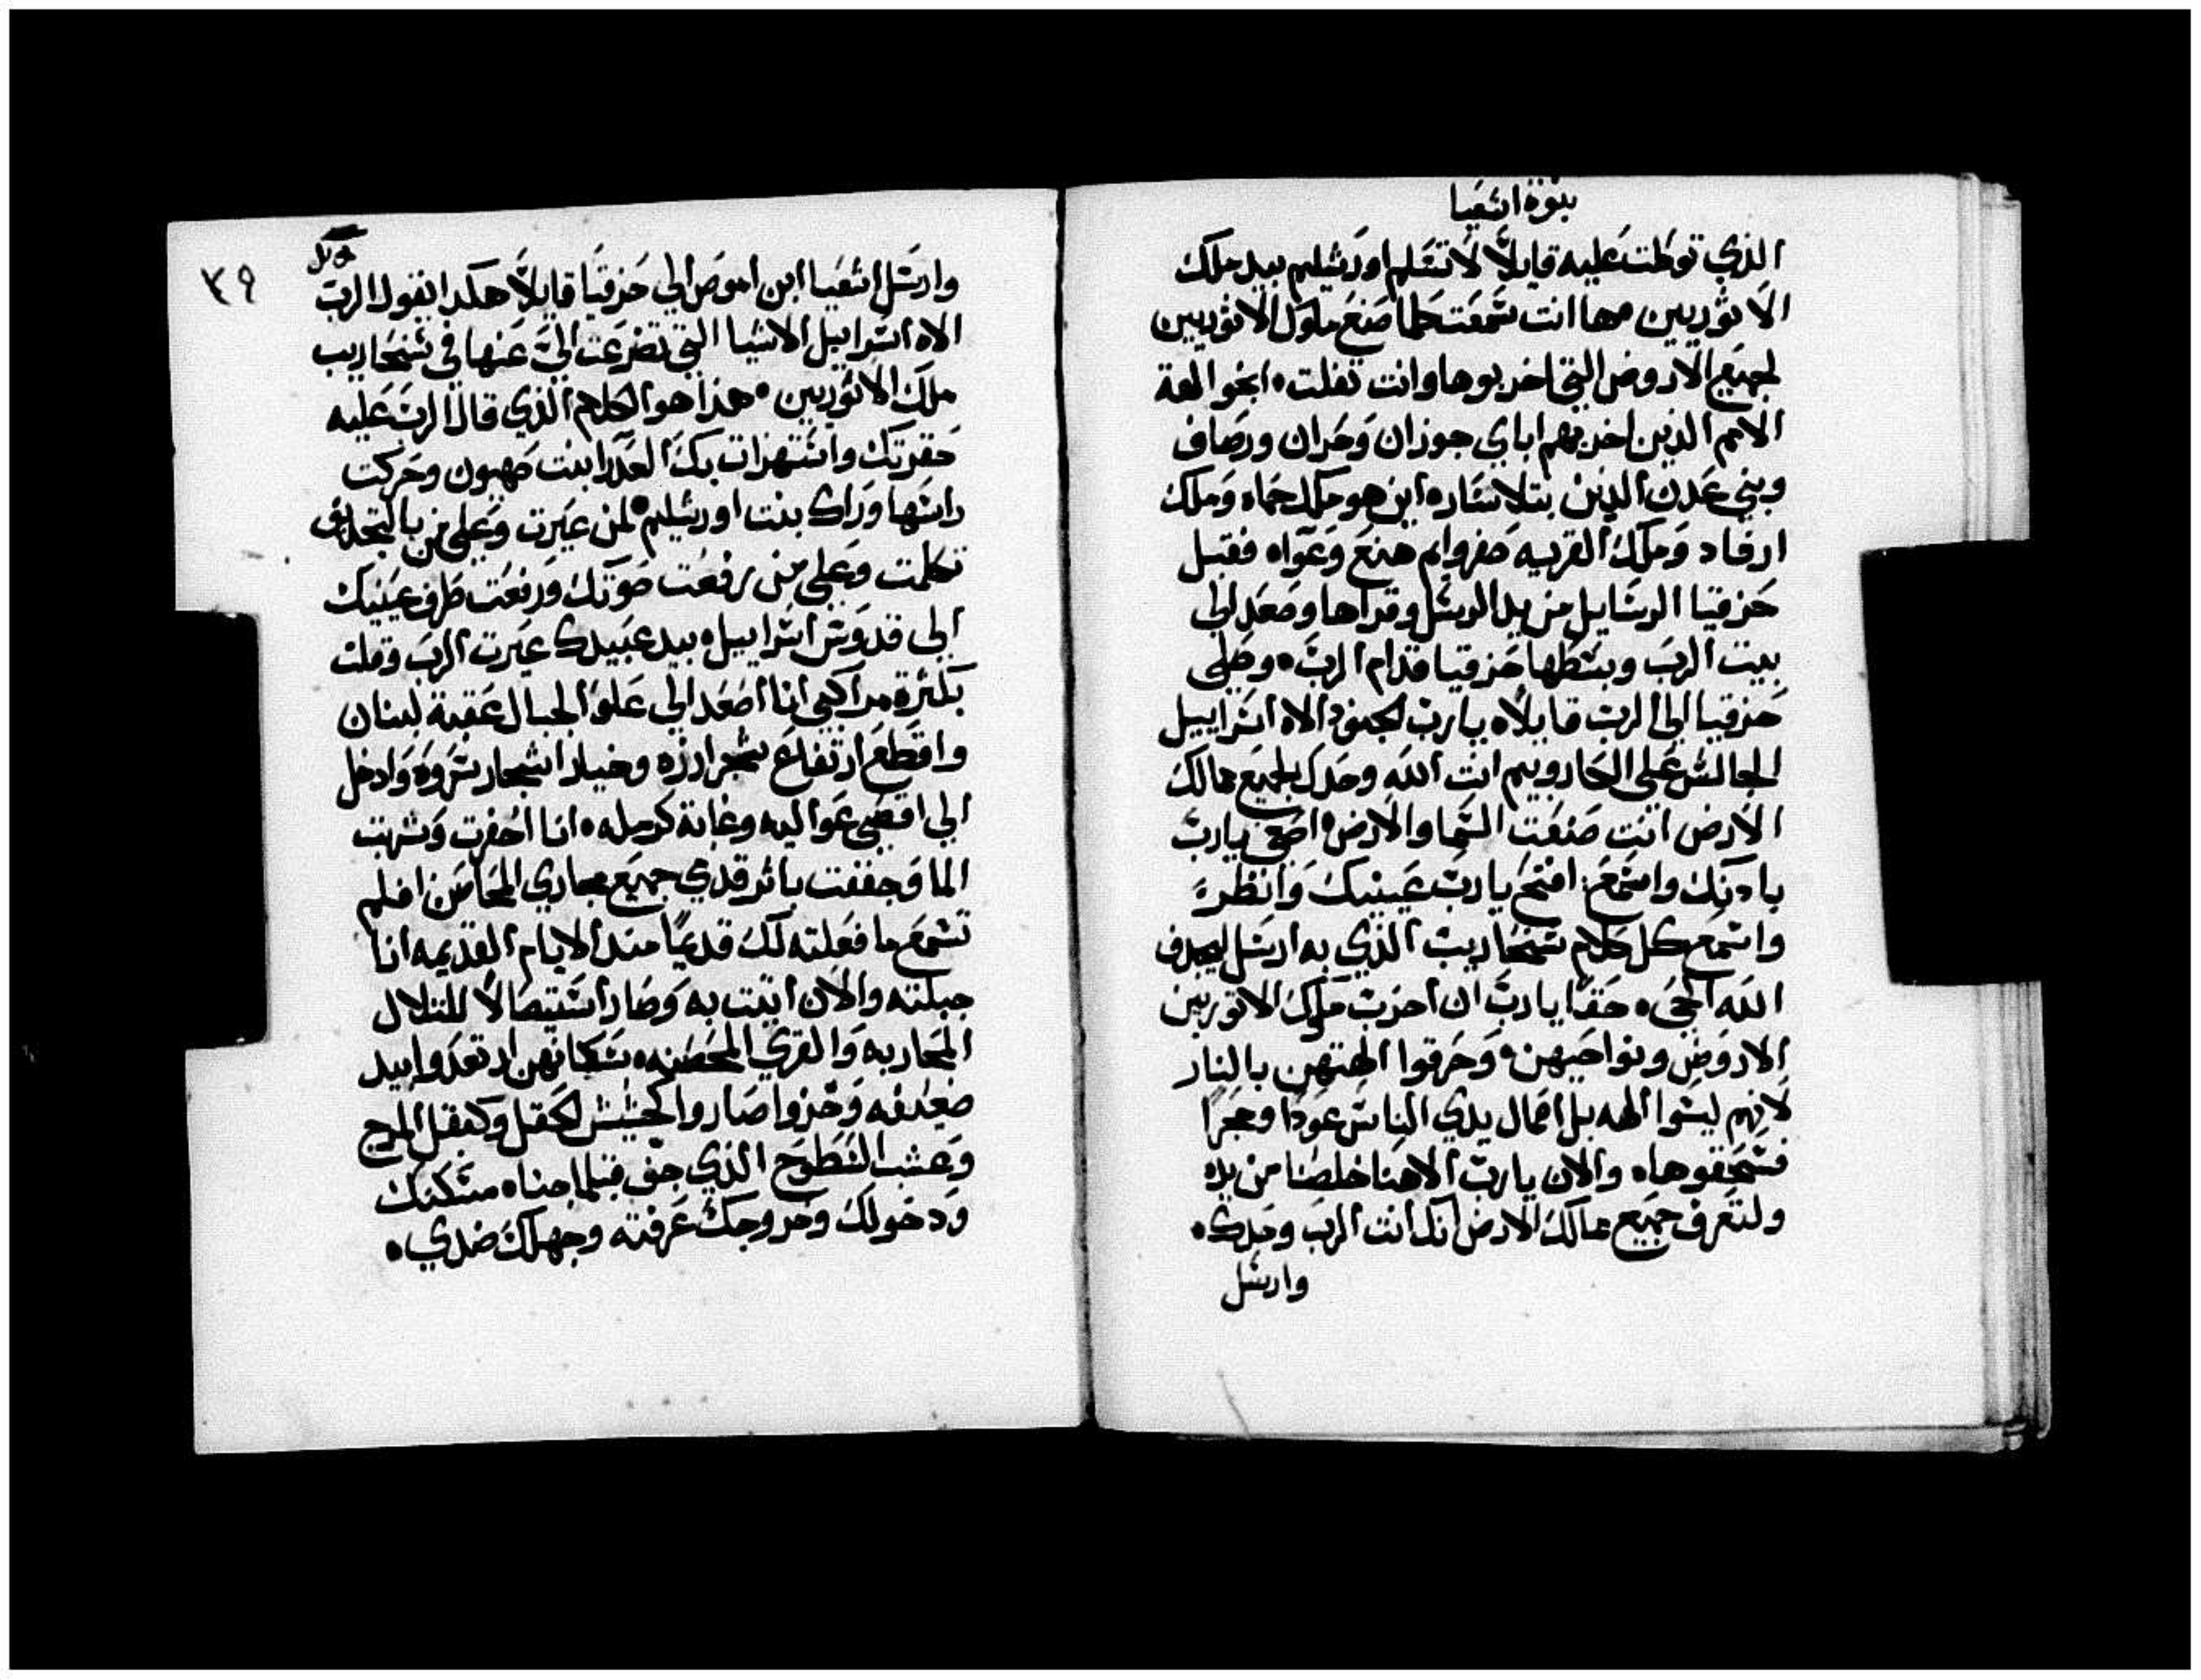 نبوة اشعيا
الذي توكلت عليه قايلاً لا تتسلم اورشليم بيد ملك
الاثوريين مها انت سمعت كلما صنع ملوك الاثوريين
لجميع الاروض التي اخربوها وانت تفلت • انجوا الهة
الامم الذين اخربهم اباي جوزان وحران ورصاف
وبني عدن الذين بتلاسار • اين هو ملك حماه وملك
ارفاد وملك القريه صفروايم هنع وعواه فقبل
حزقيا الرسايل من يد الرسل وقراها وصعد الي
بيت الرب وبسطها حزقيا قدام الرب • وصلي
حزقيا الي الرب قايلاً • يارب الجنود الاه اسراييل
الجالس علي الكاروبيم انت الله وحدك لجميع ممالك
الارض انت صنعت السما والارض • اصغي يارب
بادنك واسمع : افتح يارب عينيك وانظر •
واسمع كل كلام سنحاريب الذي به ارسل ليجدف
الله الحي • حقا يارب ان احزب ملوك الاثوريين
الاروض ونواحيهن • وحرقوا الهتهن بالنار
لانهم ليسوا الهه بل اعمال يدي الناس عودا وحجرا
فسحقوها • والان يارب الاهنا خلصنا من يده
ولتعرف جميع ممالك الارض انك انت الرب وحدك •
وارسل
٣٩
وارسل اشعيا ابن اموص الي حزقيا قايلاً هكدا يقول الرب
الاه اسراييل الاشيا التي تضرعت الي عنها في سنحاريب
ملك الاثوريين • هذا هو الكلام الذي قال الرب عليه
حقرتك واستهزات بك العدرا بنت صهيون وحركت
راسها وراك بنت اورشليم • لمن عيرت وعلي من بالتجديف
تكلمت وعلي من رفعت صوتك ورفعت طرف عينيك
الي قدوس اسراييل • بيد عبيدك عيرت الرب وقلت
بكثرة مراكبي انا اصعد الي علو الجبال عقبة لبنان
واقطع ارتفاع شجر ارزه وخيار اشجار سروه وادخل
الي اقصي عواليه وغابة كرمله • انا احفرت وشربت
الما وجففت باثر قدمي جميع مجاري المحاصن افلم
تسمع ما فعلته لك قديما مند الايام القديمه انا
جبلته والان اتيت به وصار استيصالا للتلال
المحاربه والقري المحصنه • سكانهن ارتعدوا بيد
ضعيفه وخزوا صاروا كحشيش الحقل وكبقل المرج
وعشب السطوح الذي جف قبلما جناه مسكنك
ودخولك وخروجك عرفته وجهلك ضدي •